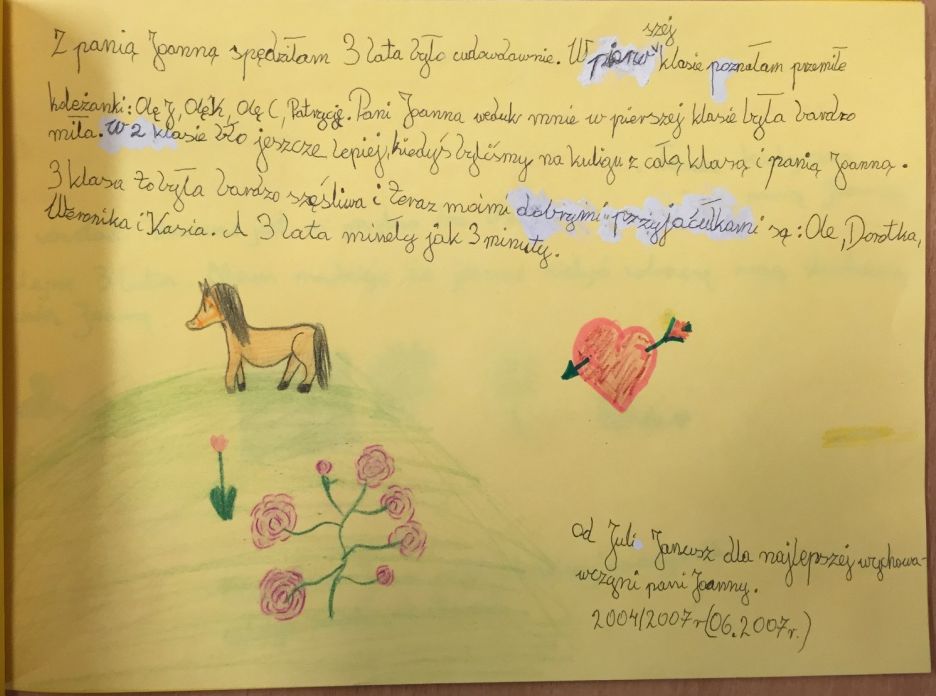 Z panią Joanną spędziłam 3 lata było cudowdawnie. W pierwszej klasie poznałam przemiłe
koleżanki: Olę J, Olę K, Olę C, Patrycję. Pani Joanna według mnie w pierszej klasie była bardzo
miła. W 2 klasie bło jeszcze lepiej, kiedyś byliśmy na kuligu z całą klasą i panią Joanną.
3 klasa to była bardzo szęśliwa i teraz moimi dobrymi przyjaćułkami są: Ole, Dorotka,
Weronika i Kasia. A 3 lata mineły jak 3 minuty.
od Juli Janusz dla najlepszej wychowa-
wczyni pani Joanny.
2004/2007r (06.2007r.)